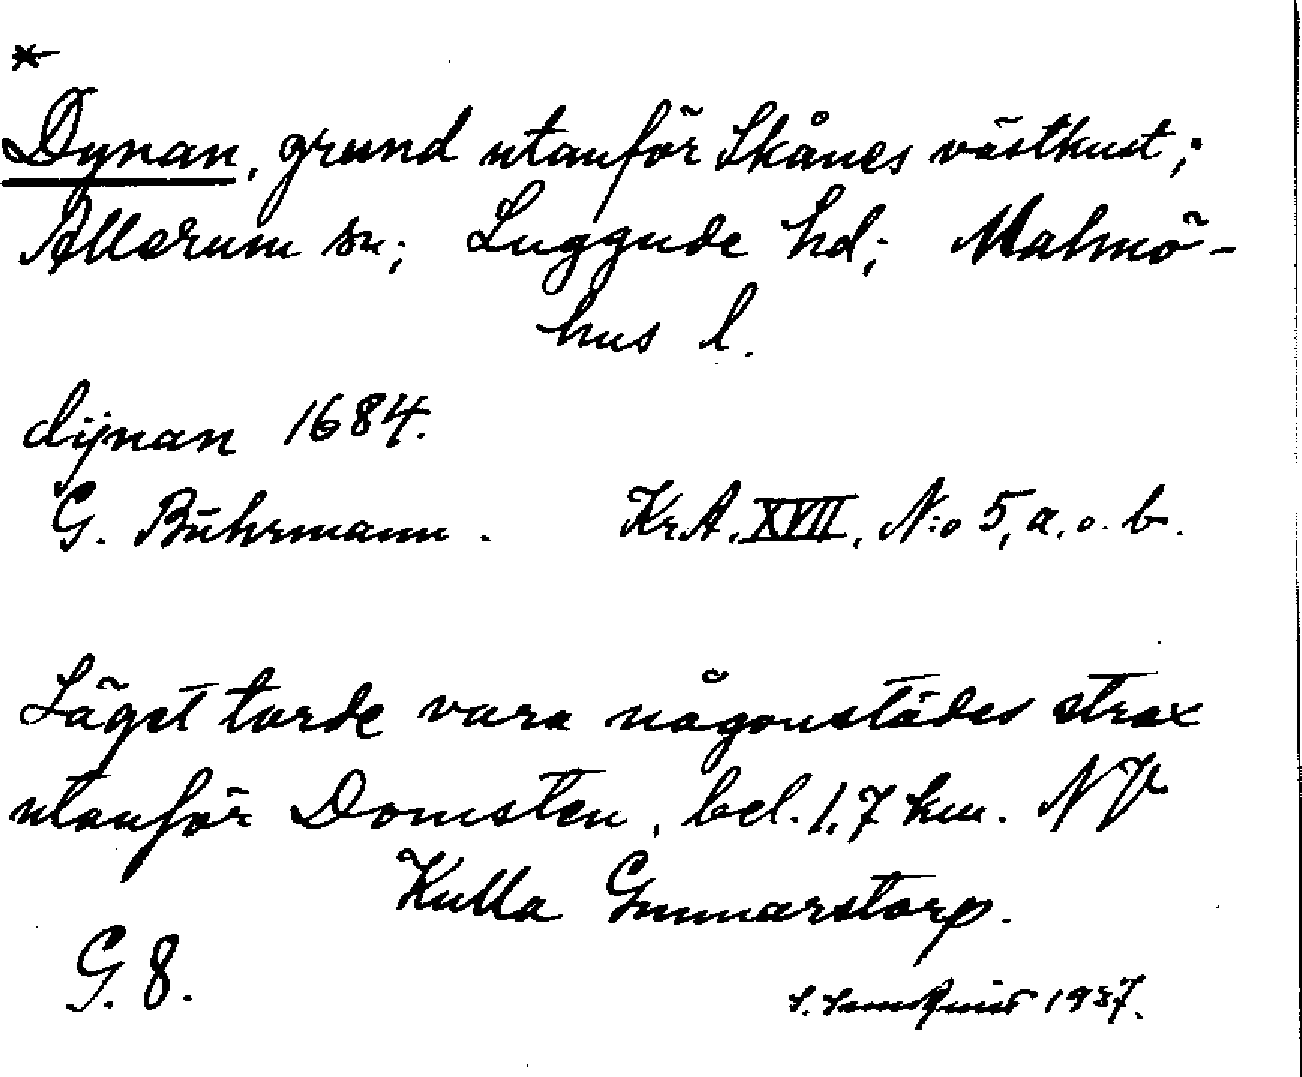 *
Dynan, grund utanför Skånes västkust;
Allerum sn; Luggude hd; Malmö-
hus l.
dijnan 1684.
G. Bührmann. Kr.A. XVII, N:o 5, a. o. b.
Läget torde vara någonstädes strax
utanför Domsten, bel. 1,7 km. NV
Kulla Gunnarstorp.
G. 8.
1937.